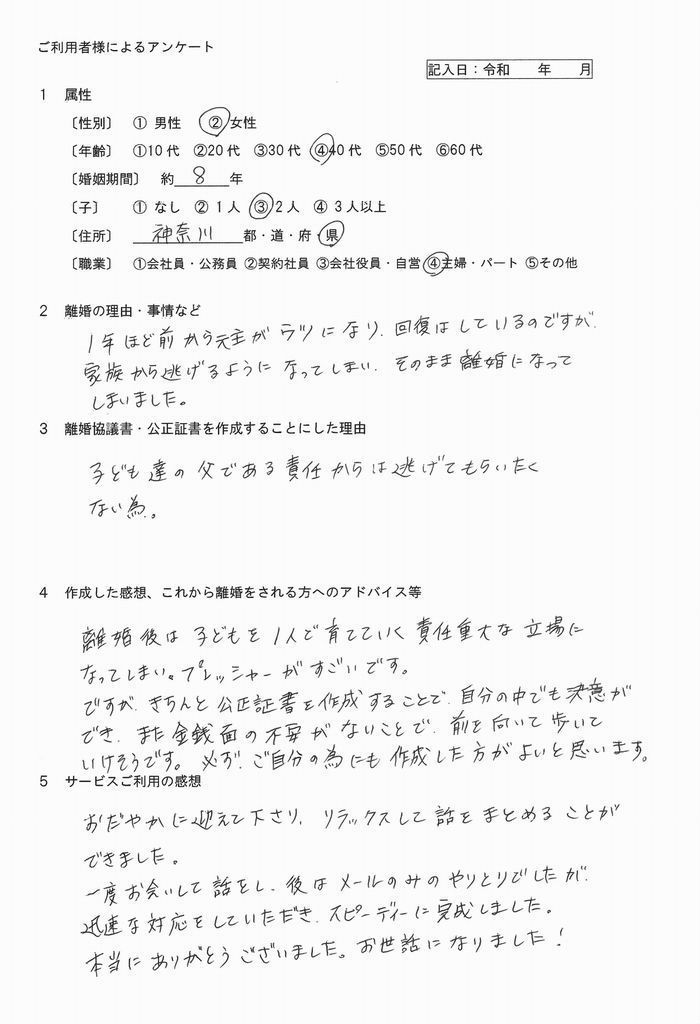 ご利用者様によるアンケート
記入日：令和　　年　　月
1　属性
〔性別〕　① 男性　②女性
〔年齢〕　①10代　②20代　③30代　④40代　⑤50代　⑥60代
〔婚姻期間〕　約 8 年
〔子〕　① なし　② 1人　③2人　④ 3人以上
〔住所〕　神奈川 都・道・府・県
〔職業〕　①会社員・公務員 ②契約社員 ③会社役員・自営 ④主婦・パート ⑤その他
2　離婚の理由・事情など
1年ほど前から元主がウツになり、回復はしているのですが、
家族から逃げるようになってしまい、そのまま離婚になって
しまいました。
3　離婚協議書・公正証書を作成することにした理由
子ども達の父である責任からは逃げてもらいたく
ない為。
4　作成した感想、これから離婚をされる方へのアドバイス等
離婚後は子どもを1人で育てていく責任重大な立場に
なってしまい、プレッシャーがすごいです。
ですが、きちんと公正証書を作成することで、自分の中でも決意が
でき、また金銭面の不安がないことで、前を向いて歩いて
いけそうです。必ず、ご自分の為にも作成した方がよいと思います。
5　サービスご利用の感想
おだやかに迎えて下さり、リラックスして話をまとめることが
できました。
一度お会いして話をし、後はメールのみのやりとりでしたが、
迅速な対応をしていただき、スピーディーに完成しました。
本当にありがとうございました。お世話になりました！